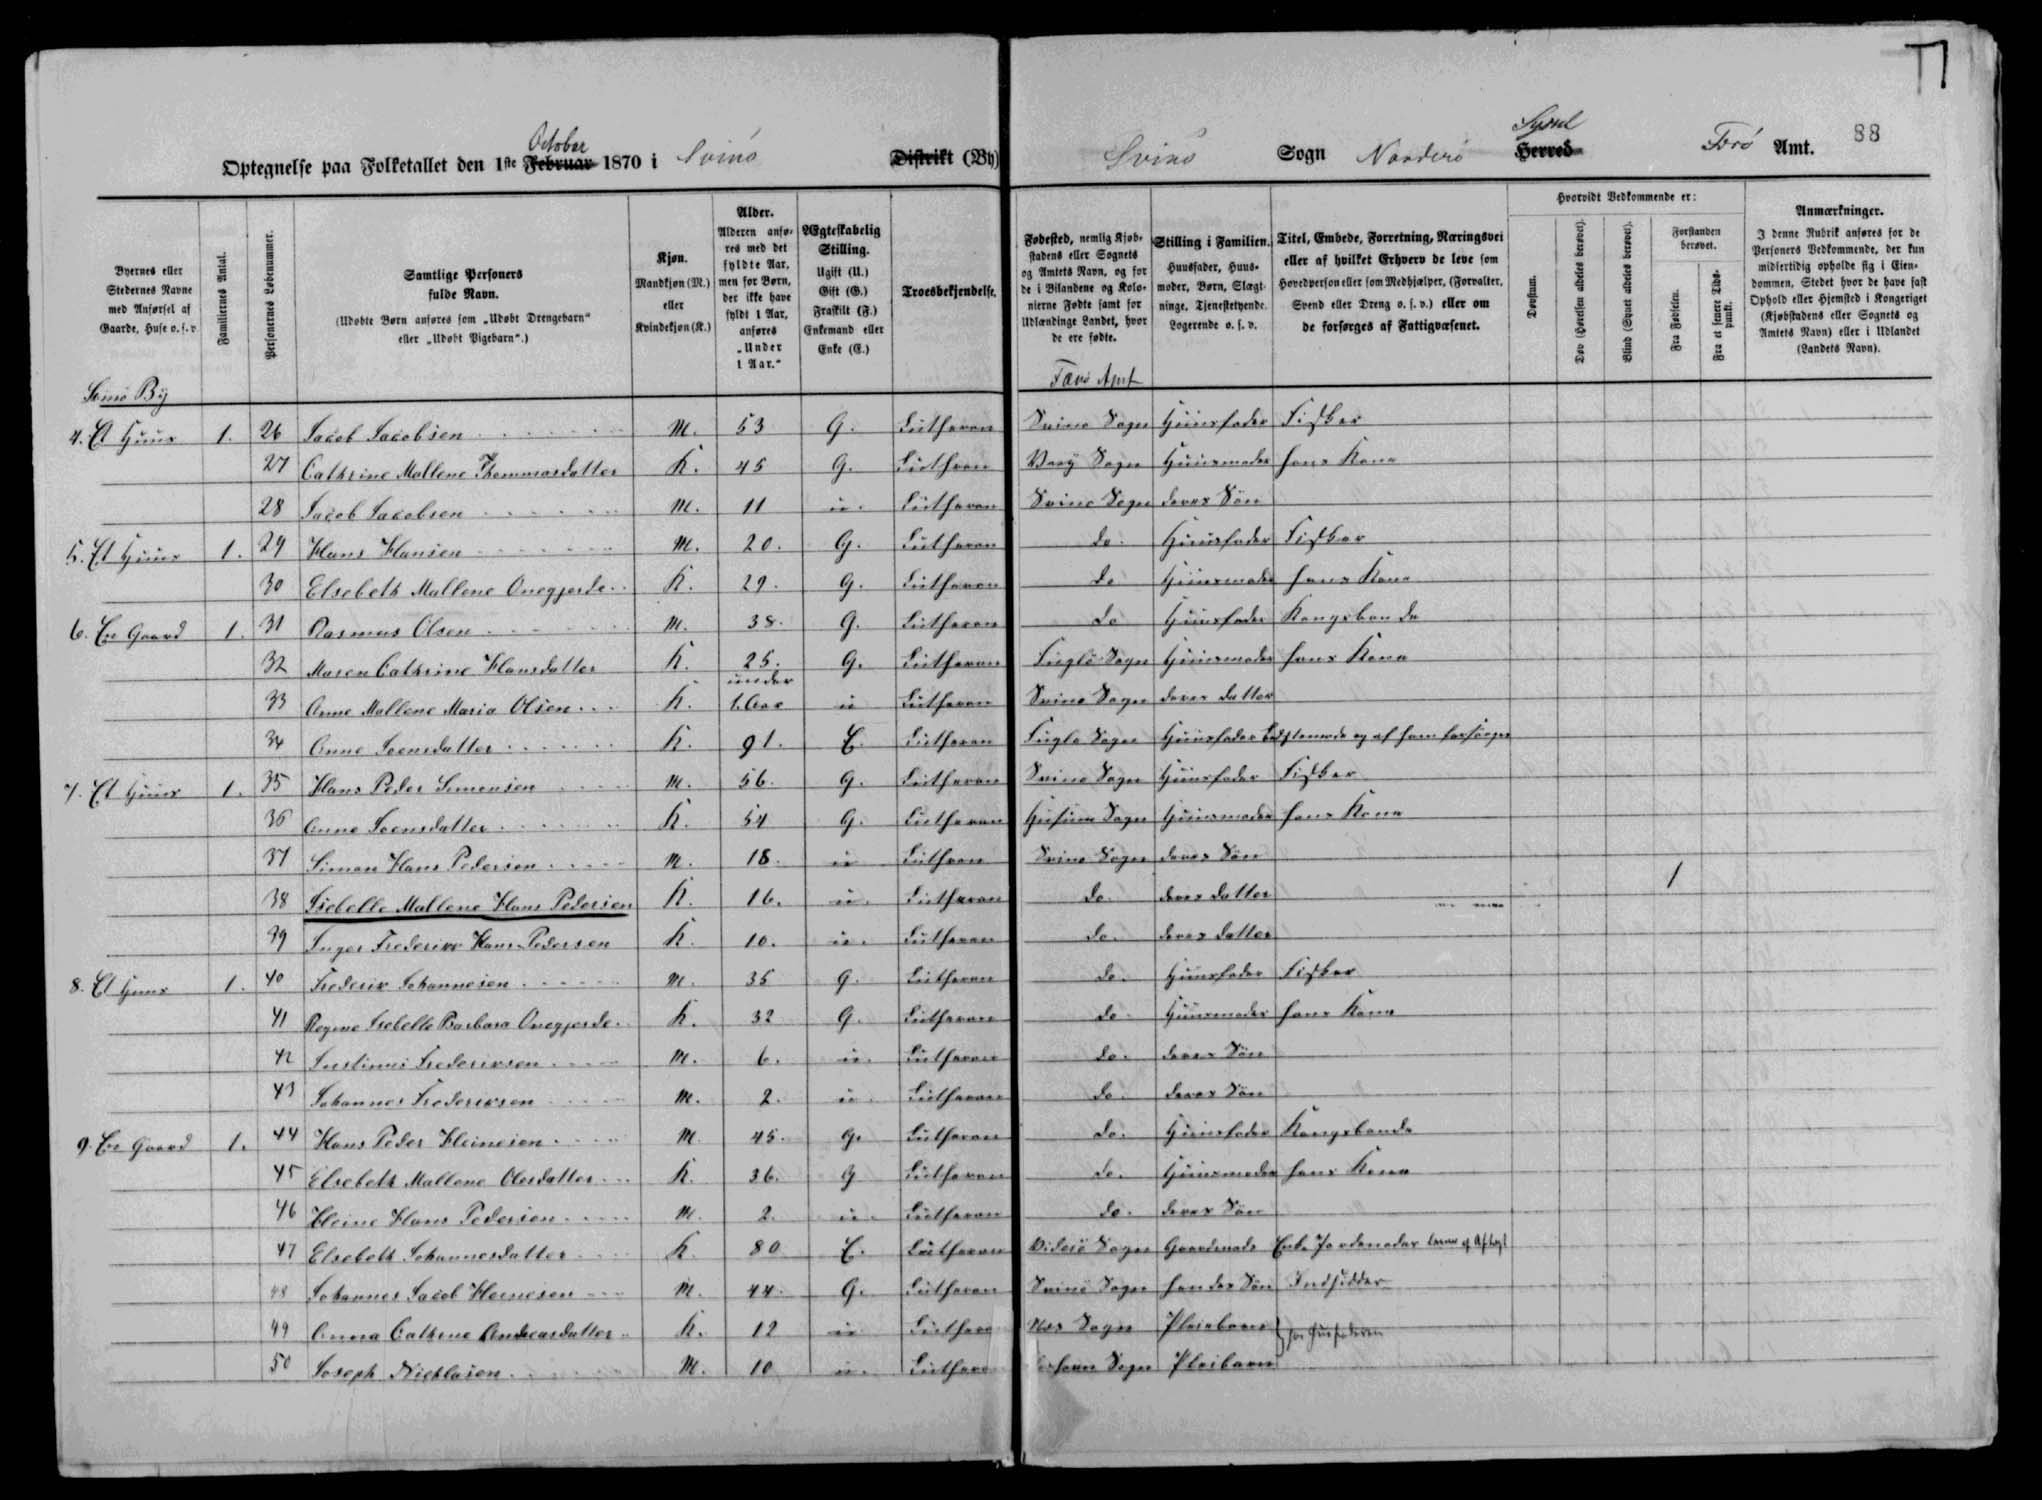 88
Optegnelse paa Folketallet den 1ste Februar October 1870 i Svinø Distrikt (By)
Svinø Sogn Norderø Herred Syssel Færø Amt.
Byernes eller Stedernes Navne med Anførsel af Gaarde, Huse o. s. v.
Familiernes Antal.
Personernes Løbenummer.
Samtlige Personers fulde Navn.
(Udøbte Børn anføres som „Udøbt Drengebarn“ eller „Udøbt Pigebarn“.)
Kjøn. Mandkjøn (M.) eller Kvindekjøn (K.)
Alder. Alderen anføres med det fyldte Aar, men for Børn, der ikke have fyldt 1 Aar, anføres „Under 1 Aar.“
Ægteskabelig Stilling. Ugift (U.) Gift (G.) Fraskilt (F.) Enkemand eller Enke (E.)
Troesbekjendelse.
Fødested, nemlig Kjøbstadens eller Sognets og Amtets Navn, og for de i Bilandene og Kolonierne Fødte samt for Udlændinge Landet, hvor de ere fødte.
Stilling i Familien. Huusfader, Huusmoder, Børn, Slægtninge, Tjenestetyende, Logerende o. s. v.
Titel, Embede, Forretning, Næringsvei eller af hvilket Erhverv de leve som Hovedperson eller som Medhjælper, (Forvalter, Svend eller Dreng o. s. v.) eller om de forsørges af Fattigvæsenet.
Hvorvidt Vedkommende er:
Døvstum.
Døv (Hørelsen aldeles berøvet).
Blind (Synet aldeles berøvet).
Forstanden berøvet.
Fra Fødselen.
Fra et senere Tidspunkt.
Anmærkninger.
I denne Rubrik anføres for de Personers Vedkommende, der kun midlertidig opholde sig i Eiendommen, Stedet hvor de have fast Ophold eller Hjemsted i Kongeriget (Kjøbstadens eller Sognets og Amtets Navn) eller i Udlandet (Landets Navn).
Svinø By Færø Amt
4. Et Huus 1. 26 Jacob Jacobsen M. 53 G. Lutheran Svinø Sogn Huusfader Fisker
27 Cathrine Mallene Thommasdatter K. 45 G. Lutheran Vaaÿ Sogn Huusmoder hans Kone
28 Jacob Jacobsen M. 11 u. Lutheran Svinø Sogn deres Søn
5. Et Huus 1. 29 Hans Hansen M. 20. G. Lutheran do. Huusfader Fisker
30 Elsebeth Mallene Onegjerde K. 29. G. Lutheran do Huusmoder hans Kone
6. En Gaard 1. 31 Rasmus Olsen M. 38. G. Lutheran do Huusfader Kongsbonde
32 Maren Cathrine Hansdatter K. 25. G. Lutheran Fuglø Sogn Huusmoder hans Kone
33 Anne Mallene Maria Olsen K. under 1. Aar u Lutheran Svinø Sogn deres datter
34 Anne Joensdatter K. 91. E. Lutheran Fuglø Sogn Huusfaders Bedstemoder og af ham forsørges
7. Et Huus 1. 35 Hans Peder Simonsen M. 56. G. Lutheran Svinø Sogn Huusfader Fisker
36 Anne Joensdatter K. 54 G. Lutheran Husum Sogn Huusmoder hans Kone
37 Simon Hans Pedersen M. 18. u Lutheran Svinø Sogn deres Søn
38 Isebelle Mallene Hans Pedersen K. 16. u. Lutheran do. deres datter 1
39 Inger Frederikke Hans Pedersen K. 10. u. Lutheran do. deres datter
8. Et Huus 1. 40 Frederik Johannesen M. 35 G. Lutheran do. Huusfader Fisker
41 Regine Isebelle Barbara Onegjerde K. 32 G. Lutheran do Huusmoder hans Kone
42 Justinus Frederiksen M. 6. u. Lutheran do. deres Søn
43 Johannes Frederiksen M. 2. u. Lutheran do. deres Søn
9. En Gaard 1. 44 Hans Peder Heinesen M 45. G. Lutheran do. Huusfader Kongsbonde
45 Elsebeth Mallene Olesdatter K. 36. G Lutheran do. Huusmoder hans Kone
46 Heine Hans Pedersen M. 2. u. Lutheran do. deres Søn
47 Elsebeth Johannesdatter K. 80 E. Lutheran Viderø Sogn Enke Jordemoder af Aftægt
48 Johannes Jacob Heinesen M. 44. G. Lutheran Svinø Sogn hendes Søn Indsidder
49 Anna Cathrine Andreasdatter K. 12 u Luthera Næs Sogn Pleiebarn } for Husfaderen
50 Joseph Nicklasen M. 10 u. Luthera Sogn Pleiebarn